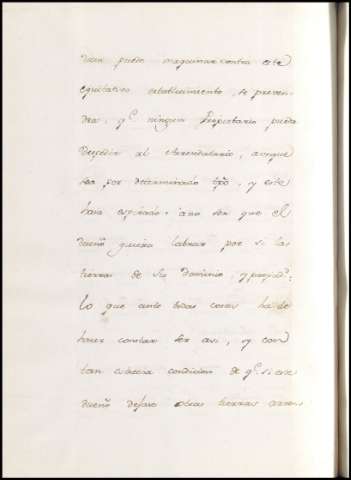 dian puede maquinar contra este
equitativo establecimiento, se preven-
dra, q.e ningun Propietario pueda
Despedir al Arrendatario, aunque
sea por determinado tpo, y este
haia espirado; a no ser que el
dueño quiera labrar por si las
tierras de su dominio,
lo que ante todas cosas ha de
hacer constar ser asi, y con
tan estrecha condicion de q.e si ese
dueño dejare otras tierras